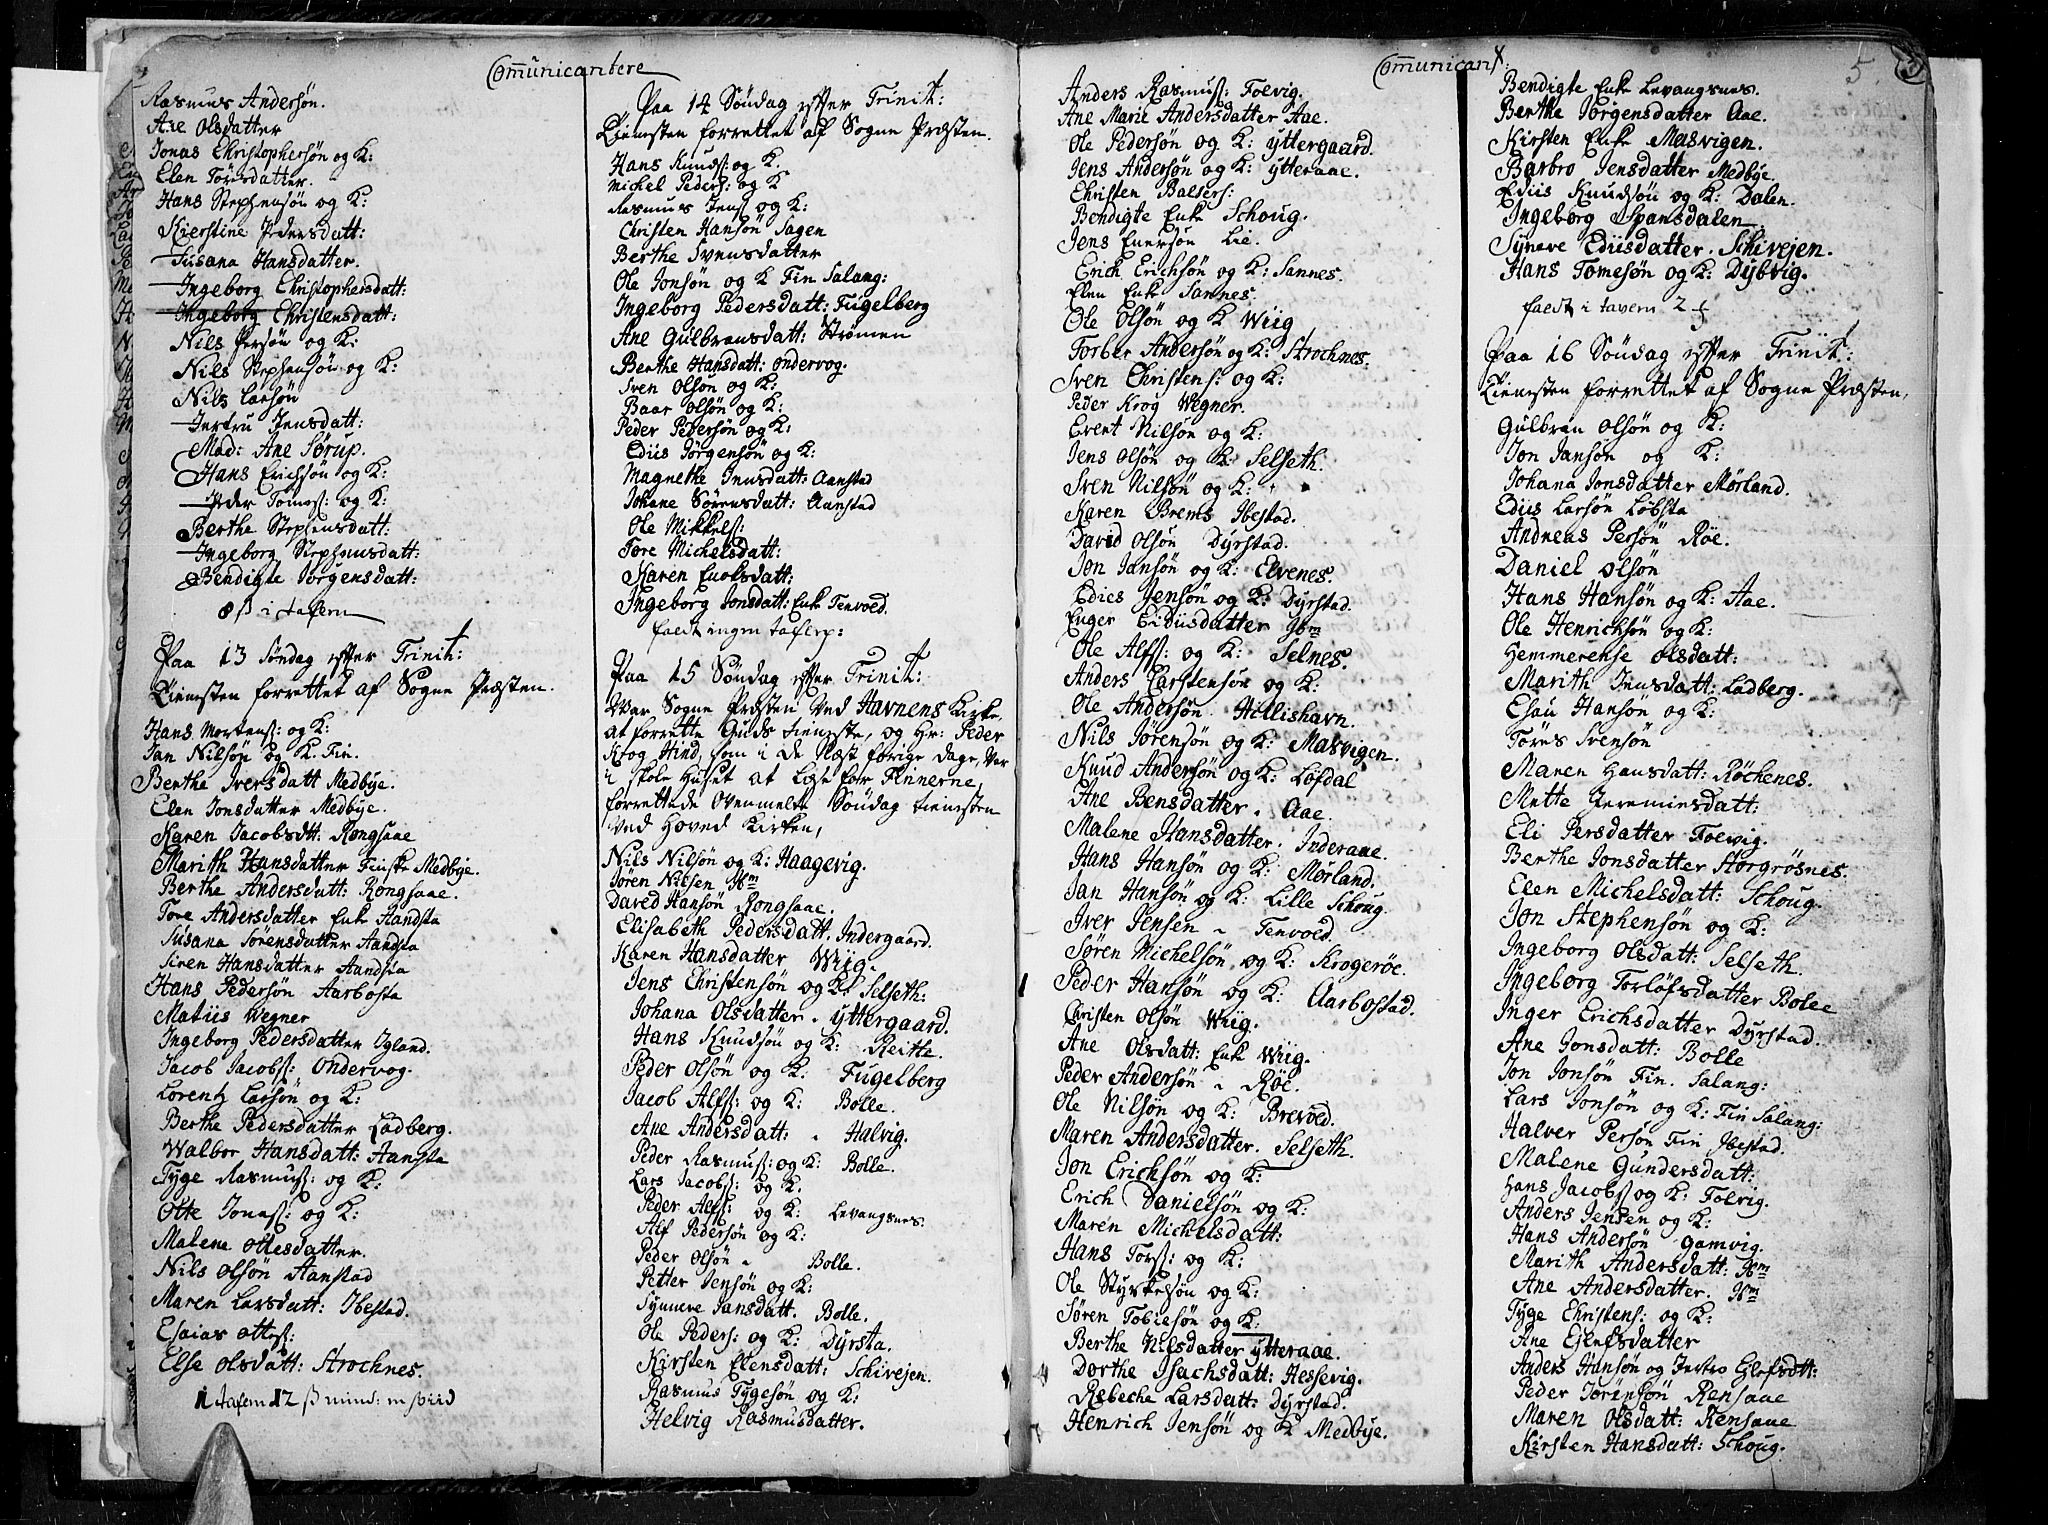 Communicantere
Rasmus Andersøn.
Ane Olsdatter
Jonas Christophersøn og K:
Elen Toresdatter.
Hans Stephensøn og K:
Kierstine Pdersdatt:
Susana Hansdatter.
Ingeborg Christophersdatt:
Ingeborg Christensdatt:
Nils Persøn og K:
Nils Stephensøn og K:
Nils Larsøn
Jertru Jensdatt:
Mad: Ane Sørup.
Hans Erichsøn og K:
Peder Tomas: og K:
Berthe Stephensdatt:
Ingeborg Stephensdatt:
Bendigte Jørgensdatt:
8 ß i tafern
Paa 13 Søndag effter Trinit:
Tienesten forrettet af Sogne Præsten.
Hans Mortens: og K:
Jan Nilsøn og K. Fin.
Berthe Iversdatt Medbye.
Elen Jonsdatter Medbye.
Karen Jacobsdtt: Rongsaae
Marith Hansdatter Finske Medbye.
Berthe Andersdatt: Rongsaae.
Tore Andersdatter Enk Aandsta
Susana Sørensdatter Aandsta
Siren Hansdatter Aandsta
Hans Pedersøn Aarbosta
Matiis Wegner
Ingeborg Pedersdatter Igland.
Jacob Jacobs: Ondervog.
Lorentz Larsøn og K:
Berthe Pedersdatter Ladberg.
Walbor Hansdatt: Aansta
Tyge Rasmus: og K:
Otte Jonas: og K:
Malene Ottesdatter.
Nils Olsøn Aanstad
Maren Larsdatt: Ibestad.
Esaias Ottes:
Else Olsdatt: Strochnes.
1 tafern 12 ß mind:
Paa 14 Søndag effter Trinit:
Tienesten forrettet af Sogne Præsten.
Hans Knuds: og K.
Michel Peders: og K
Rasmus Jens: og K:
Christen Hansøn Sagen
Berthe Svensdatter
Ole Jonsøn og K Fin Salang:
Ingeborg Pedersdatt: Fugelberg
Ane Gulbransdatt: Strømen
Berthe Hansdatt: Ondervog.
Sven Olsøn og K:
Baar Olsøn og K:
Peder Pedersøn og K:
Ediis Jørgensøn og K:
Magnethe Jensdatt: Aanstad
Johane Sørensdatt: Aanstad
Ole Mikkels:
Tore Michelsdatt:
Karen Enoksdatt:
Ingeborg Jonsdatt: Enk Tenvoed.
faldt ingen taferp:
Paa 15 Søndag effter Trinit:
War Sogne Præsten Ved Havnens Kirke,
at forrette Guds tieneste, og Hr: Peder
Krog Hind, som i de Næst forige dage, Var
i skole Huset at Læse for Finnerne,
forrettede Ovenmelte Søndag tienesten
Ved Hoved Kirken,
Nils Nilsøn og K: Haagevig.
Jøren Nilsen Ibm
David Hansøn Rongsaae.
Elisabeth Pedersdatt: Indergaard.
Karen Hansdatter Wiig.
Jens Christensøn og K: Selseth:
Johana Olsdatter. yttergaard.
Hans Knudsøn og K: Reitte.
Peder Olsøn og K: Fugelberg
Jacob Alfs: og K: Bolle.
Ane Andersdatt: Halvig.
Peder Rasmus: og K: Bolle.
Lars Jacobs: og K:
Peder Alfs: og K: Levangsnes.
Alf Pedersøn og K:
Peder Olsøn Bolle.
Petter Jensøn og K:
Synnere Jansdatt. Bolle.
Ole Peders: og K: Dyrsta.
Kirsten Elensdatt: Schivejen.
Rasmus Tygesøn og K:
Helvig Rasmusdatter.
Communicant:
5.
Anders Rasmus: Foevig.
Ane Marie Andersdatter Aae.
Ole Pedersøn og K: yttergaard.
Jens Andersøn og K: ytteraae.
Christen Balsers:
Bendigte Enk Schoug.
Jens Enersøn Lie.
Erich Erichsøn og K: Sannes.
Elen Enk Sannes.
Ole Olsøn og K Wiig
Torber Andersøn og K: Strochnes.
Sven Christens: og K:
Peder Krog Wegner.
Event Nilson og K:
Jens Olsøn og K: Selseth.
Sven Nilsøn og K:
Karen Brems Ibestad.
David Olsøn Dyrstad.
Jon Jansøn og K: Elvenes.
Edies Jensøn og K: Dyrstad.
Enger Eidiisdatter Ibm
Ole Alfs: og K: Selnes.
Anders Carstensøn og K:
Ole Andersøn Hillishavn.
Nils Jørensøn og K: Masvigen.
Knud Andersøn og K: Løfdal
Ane Bensdatter. Aae.
Malene Hansdatter. Inderaae.
Hans Hansøn og K: Mørland.
Jan Hansøn og K: Lille Schoug.
Iver Jensen Tenvoed.
Søren Michelsøn og K: Krogerøe.
Peder Hansøn og K: Aarbostad.
Christen Olsøn Wiig.
Ane Olsdatt: Enk Wiig.
Peder Andersøn Røe.
Ole Nilsøn og K: Brevoed.
Maren Andersdatter. Selseth.
Jon Erichsøn og K:
Erich Danielsøn og K:
Maren Michelsdatt:
Hans Tors: og K:
Ole Styrkesøn og K:
Søren Tobiesøn og K:
Berthe Nilsdatter ytteraae.
Dorthe Isachsdatt: Hessevig.
Rebeche Larsdatt: Dyrstad.
Henrich Jensøn og K Medbye.
Bendigte Enk Levangsnes.
Berthe Jørgensdatter Aae.
Kirsten Enke Masvigen.
Barbro Jensdatter Medbye
Ediis Knudsøn og K: Dalen.
Ingeborg Spansdalen
Synove Ediisdatter. Schivejen.
Hans Tomesøn og K: Dybvig.
faldt i tavern 2
Paa 16 Søndag effter Trinit:
Tienesten forrettet af Sogne Præsten,
Gulbran Olsøn og K:
Jon Jansøn og K:
Johana Jonsdatter Mørland.
Ediis Larsøn Løbsta
Andreas Persøn Røe.
Daniel Olsøn
Hans Hansøn og K: Aae.
Ole Henrichsøn og K:
Hemmerense Olsdatt:
Marith Jensdatt: Ladberg.
Esau Hansøn og K:
Tøres Svensøn
Maren Hansdatt: Røchenes.
Mette Jereminsdatt:
Eli Persdatter Foevig.
Berthe Jonsdatter Storgrøsnes.
Elen Michelsdatt: Schoug.
Jon Stephensøn og K:
Ingeborg Olsdatt: Selseth.
Ingeborg Torløfsdatter Bolee
Inger Erichsdatter Dyrstad.
Ane Jonsdatt: Bolle
Jon Jonsøn Fin. Salang:
Lars Jonsøn og K: Fin Salang:
Halver Persøn Fin Ibestad.
Malene Gundersdatt:
Hans Jacobs: og K: Foevig.
Anders Jensen og K:
Hans Andersøn Gamvig.
Marith Andersdatt: Ibm
Ane Andersdatter. Ibm
Tyge Christens: og K:
Ane Ejlefsdatter
Anders Hansøn og Jertro Elefsdtt:
Peder Jørensøn Rensaae
Maren Olsdatt: Rensaae
Kirsten Hansdatt: Schoug.